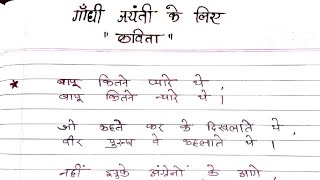 गाँधी जयंती के लिए
" कविता "
* बापू कितने प्यारे थे,
बापू कितने न्यारे थे।
जो कहते कर के दिखलाते थे,
वीर पुरुष वे कहलाते थे।
नहीं झुके अंग्रेजों के आगे